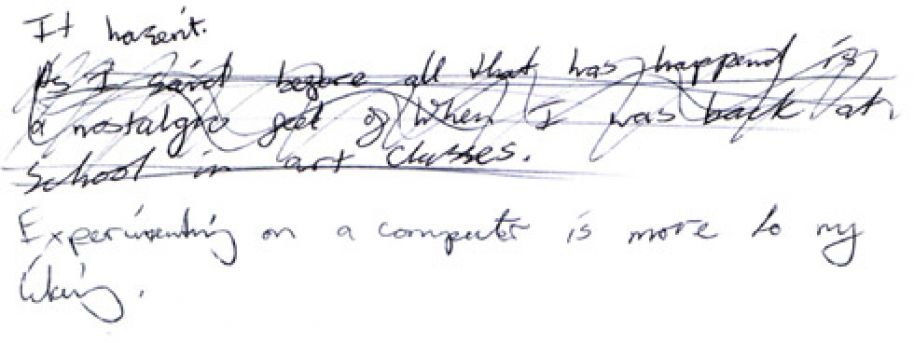 It hasen't.
As I said before all that has happend is
a nostalgic feel of when I was back at
school in art classes.
Experimenting on a computer is more to my
liking.